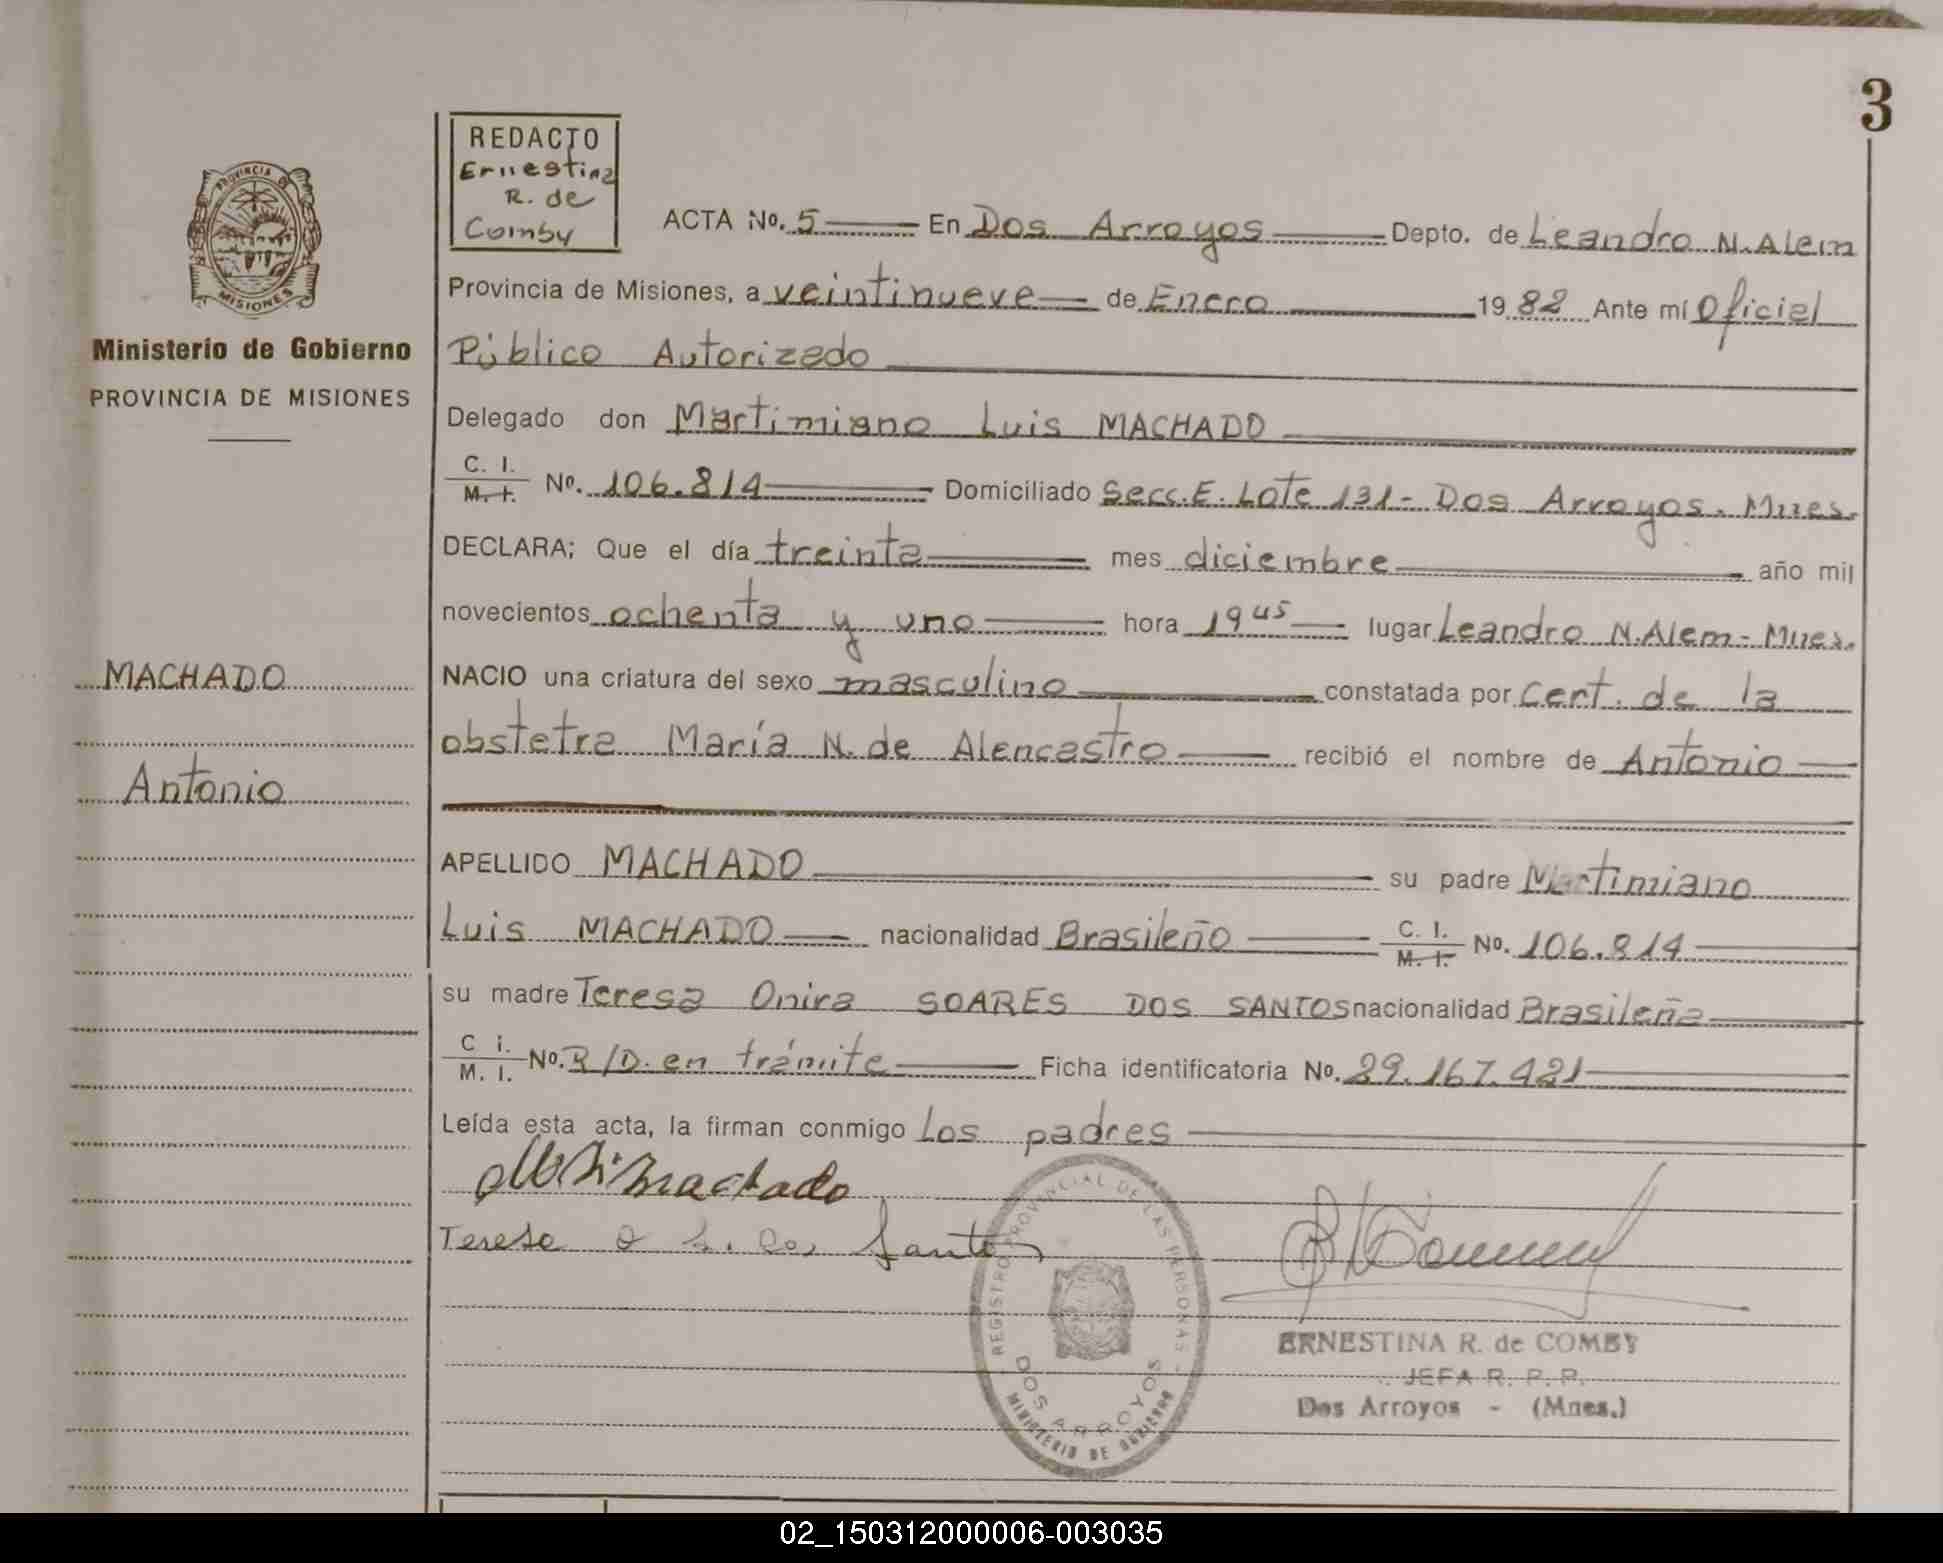 3
REDACTO
Ernestina
R. de
Comby
PROVINCIA DE
MISIONES
Ministerio de Gobierno
PROVINCIA DE MISIONES
MACHADO
Antonio
ACTA No. 5 En Dos Arroyos Depto. de Leandro N. Alem
Provincia de Misiones, a veintinueve de Enero 1982 Ante mí Oficial
Público Autorizado
Delegado don Martimiano Luis MACHADO
C. I. M. I. No. 106.814 Domiciliado Secc. E. Lote 131 - Dos Arroyos. Mnes.
DECLARA; Que el día treinta mes diciembre año mil
novecientos ochenta y uno hora 19 45 lugar Leandro N. Alem - Mnes.
NACIO una criatura del sexo masculino constatada por Cert. de la
obstetra María N. de Alencastro recibió el nombre de Antonio
APELLIDO MACHADO su padre Martimiano
Luis MACHADO nacionalidad Brasileño C. I. M. I. No. 106.814
su madre Teresa Onira SOARES DOS SANTOS nacionalidad Brasileña
C i. M. I. No. R/D. en trámite Ficha identificatoria No. 29.167.421
Leída esta acta, la firman conmigo Los padres
Machado
Teresa O S. Santos
REGISTRO PROVINCIAL DE LAS PERSONAS
DOS ARROYOS
MINISTERIO DE GOBIERNO
ERNESTINA R. de COMBY
JEFA R. P. P.
Dos Arroyos - (Mnes.)
02_150312000006-003035